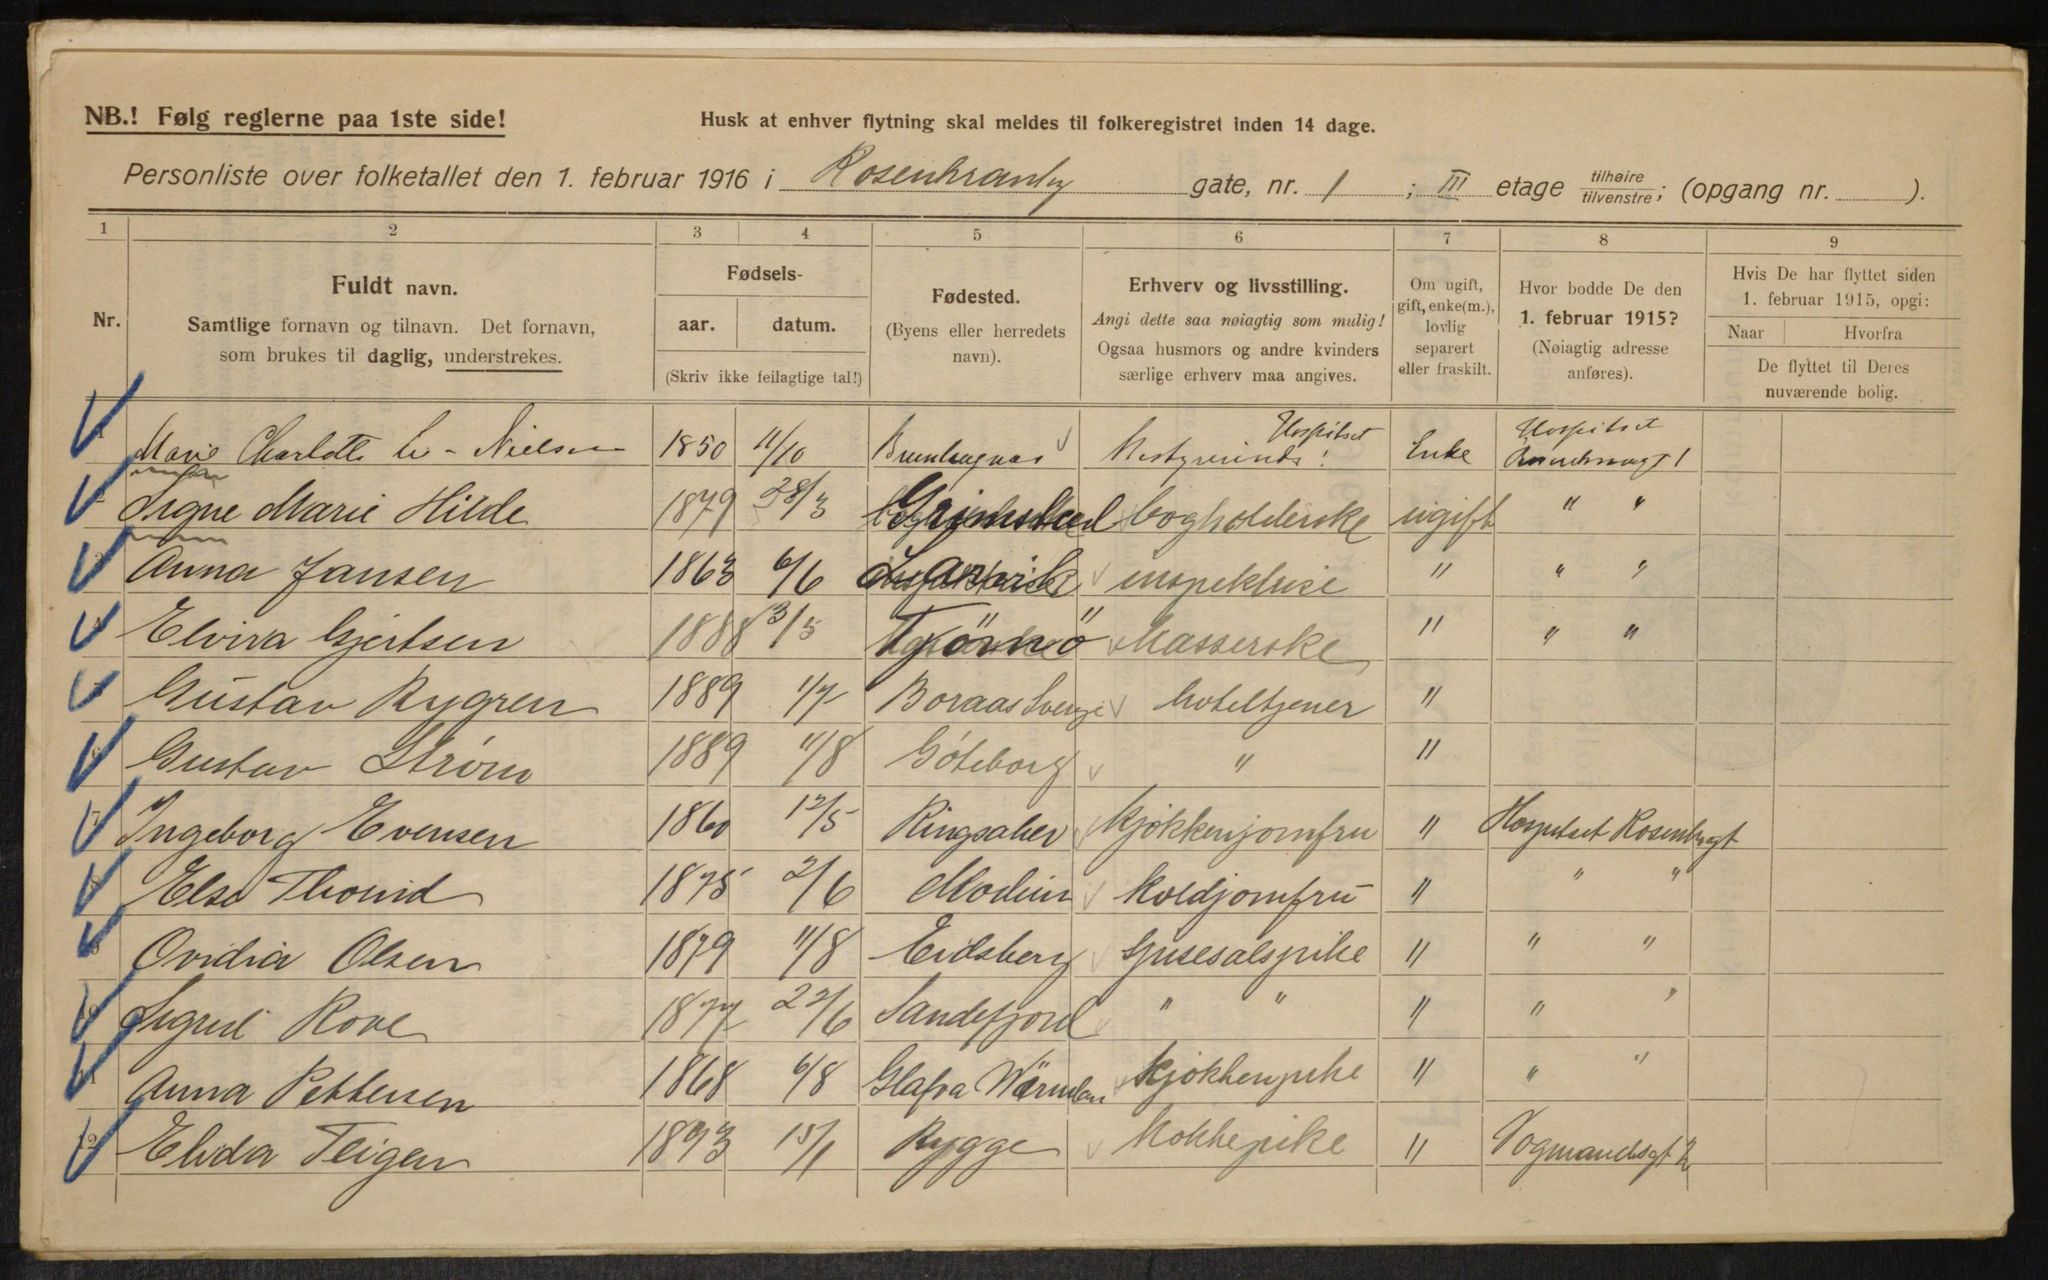 NB.! Følg reglerne paa 1ste side!
Husk at enhver flytning skal meldes til folkeregistret inden 14 dage.
Personliste over folketallet den 1. februar 1916 i Rosenkrantz gate, nr. 1 ; III etage tilhøire tilvenstre; (opgang nr. ).
1 2 3 4 5 6 7 8 9
Nr.
Fuldt navn.
Samtlige fornavn og tilnavn. Det fornavn,
som brukes til daglig, understrekes.
Fødsels-
aar. datum.
(Skriv ikke feilagtige tal!)
Fødested.
(Byens eller herredets
navn).
Erhverv og livsstilling.
Angi dette saa nøiagtig som mulig!
Ogsaa husmors og andre kvinders
særlige erhverv maa angives.
Om ugift,
gift, enke(m.),
lovlig
separert
eller fraskilt.
Hvor bodde De den
1. februar 1915?
(Nøiagtig adresse
anføres).
Hvis De har flyttet siden
1. februar 1915, opgi:
Naar Hvorfra
De flyttet til Deres
nuværende bolig.
1 Marie Charlotte Nielsen 1850 11/10 Bestyrerinde Hospitset Enke Hospitset
2 Signe Marie Hilde 1879 28/3 Grimstad bogholderske ugift " "
3 Anna Jansen 1863 6/6 Larvik inspektrise " " "
4 Elvira Gjertsen 1888 3/5 Tjömö Kasserske " " "
5 Gustav Rygren 1889 1/7 Boraas Sverige hoteltjener "
6 Gustav Strøm 1889 11/8 Göteborg " "
7 Ingeborg Evensen 1860 12/5 Ringsaker Kjøkkenjomfru " Hospitset Rosenkrgt
8 Else Thorud 1875 2/6 Modum Koldjomfru " " "
9 Ovidia Olsen 1879 11/8 Eidsberg Spisesalspike " " "
10 Sigrid Rove 1877 22/6 Sandefjord " " " " "
11 Anna Pettersen 1868 6/8 Glafva Wärmlan Kjøkkenpike " " "
12 Elida Teigen 1893 15/1 Rygge Kokkepike " Vognmandsgt 2